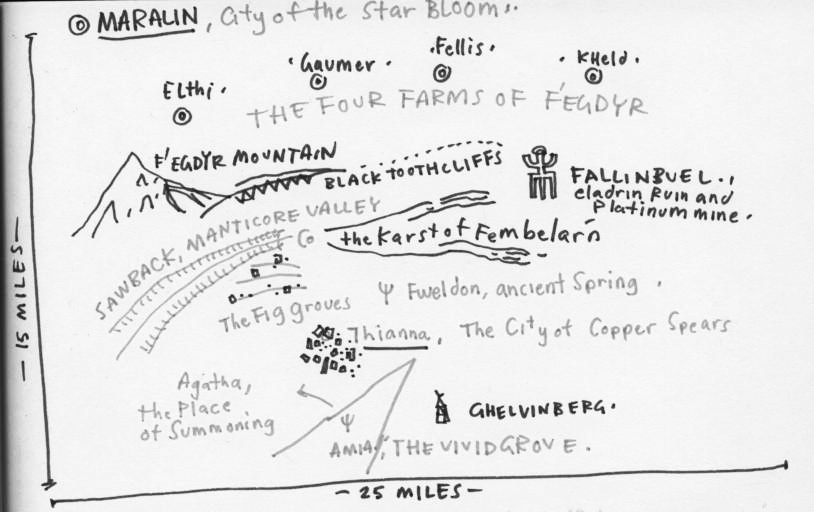 MARALIN, City of the Star Bloom.
Elthi.
Gaumer.
Fellis.
Kheld.
THE FOUR FARMS OF F'EGDYR
F'EGDYR MOUNTAIN
BLACK TOOTH CLIFFS
FALLINBUEL.,
eladrin Ruin and
Platinum mine.
SAWBACK, MANTICORE VALLEY
the Karst of Fembelarn
The Fig groves
Fweldon, ancient Spring.
Thianna, The City of Copper Spears
Agatha,
the Place
of Summoning
GHELVINBERG.
AMIA, THE VIVID GROVE.
15 MILES
25 MILES